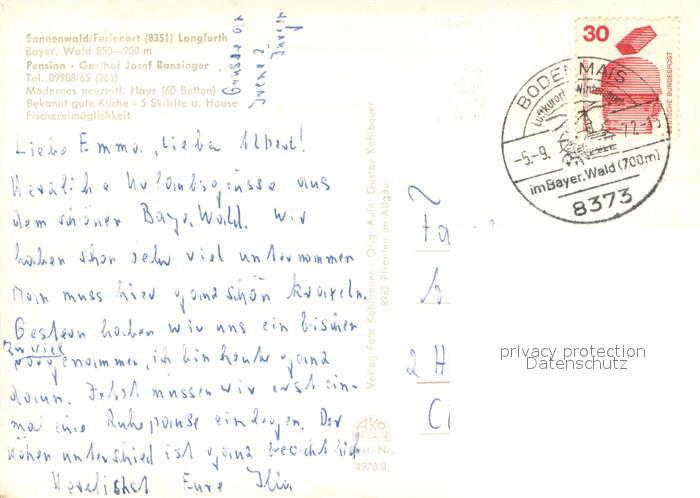 Sonnenwald/Ferienort (8351) Langfurth
Bayer. Wald 850—900 m
Pension - Gasthof Josef Ranzinger
Tel. 09908/65 (265)
Modernes neuzeitl. Haus (60 Betten)
Bekannt gute Küche - 5 Skilifte a. Hause
Fischereimöglichkeit
Grüsse an
Irene 2
Jürgen
Liebe Emma, lieber Albert!
Herzliche Urlaubsgrüsse aus
dem schönen Baye. Wald. Wir
haben schon sehr viel unternommen
Man muss hier ganz schön kraxeln.
Gestern haben wir uns ein bischen
zuviel
vorgenommen, ich bin heute ganz
daun. Jetzt müssen wir erst ein-
mal eine Ruhepause einlegen. Der
Höhenunterschied ist ganz beachtlich
Herzlichst Eure Ilia
Verlag Foto Kohlbauer · Orig. Aufn. Gustav Kohlbauer
8962 Pfronten im Allgäu
AKO
Best.-Nr.
4978 0
30
DEUTSCHE BUNDESPOST
BODENMAIS
Luftkurort Wintersport
-5.-9. 72-15
im Bayer. Wald (700m)
8373
Fa
2 H
privacy protection
Datenschutz